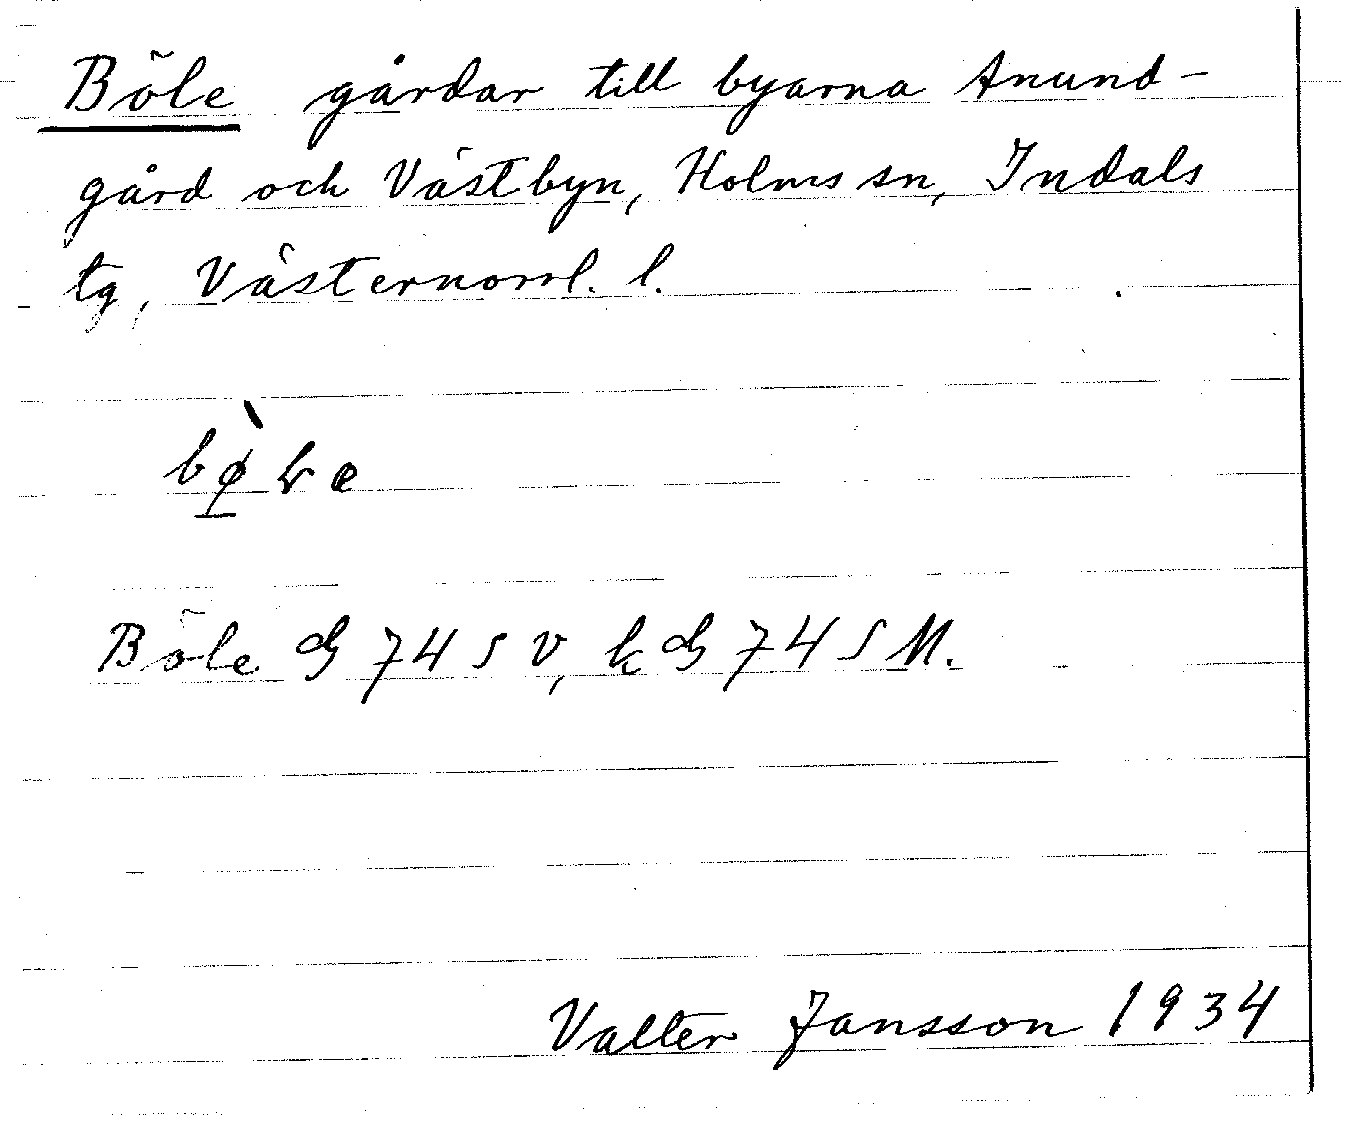 Böle gårdar till byarna Anund-
gård och Västbyn, Holms sn, Indals
tg, Västernorrl. l.
Böle 74 SV, 74 S M.
Valter Jansson 1934